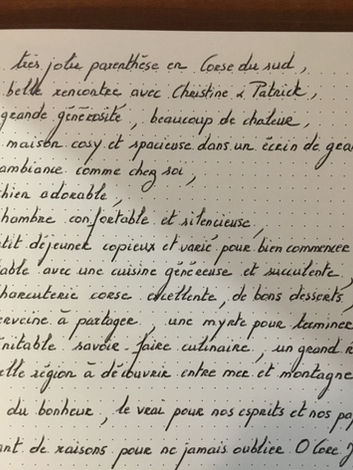 très jolie parenthèse en Corse du sud,
belle rencontre avec Christine & Patrick,
grande générosité, beaucoup de chaleur,
maison cosy et spacieuse dans un écrin de
ambiance comme chez soi,
chien adorable,
chambre confortable et silencieuse,
tit déjeuner copieux et varié pour bien commencer
table avec une cuisine généreuse et succulente,
charcuterie corse excellente, de bons desserts,
erveine à partager, une myrte pour terminer
initable savoir faire culinaire, un grand
elle région à découvrir entre mer et montagne
du bonheur, le vrai pour nos esprits et nos
ant de raisons pour ne jamais oublier O